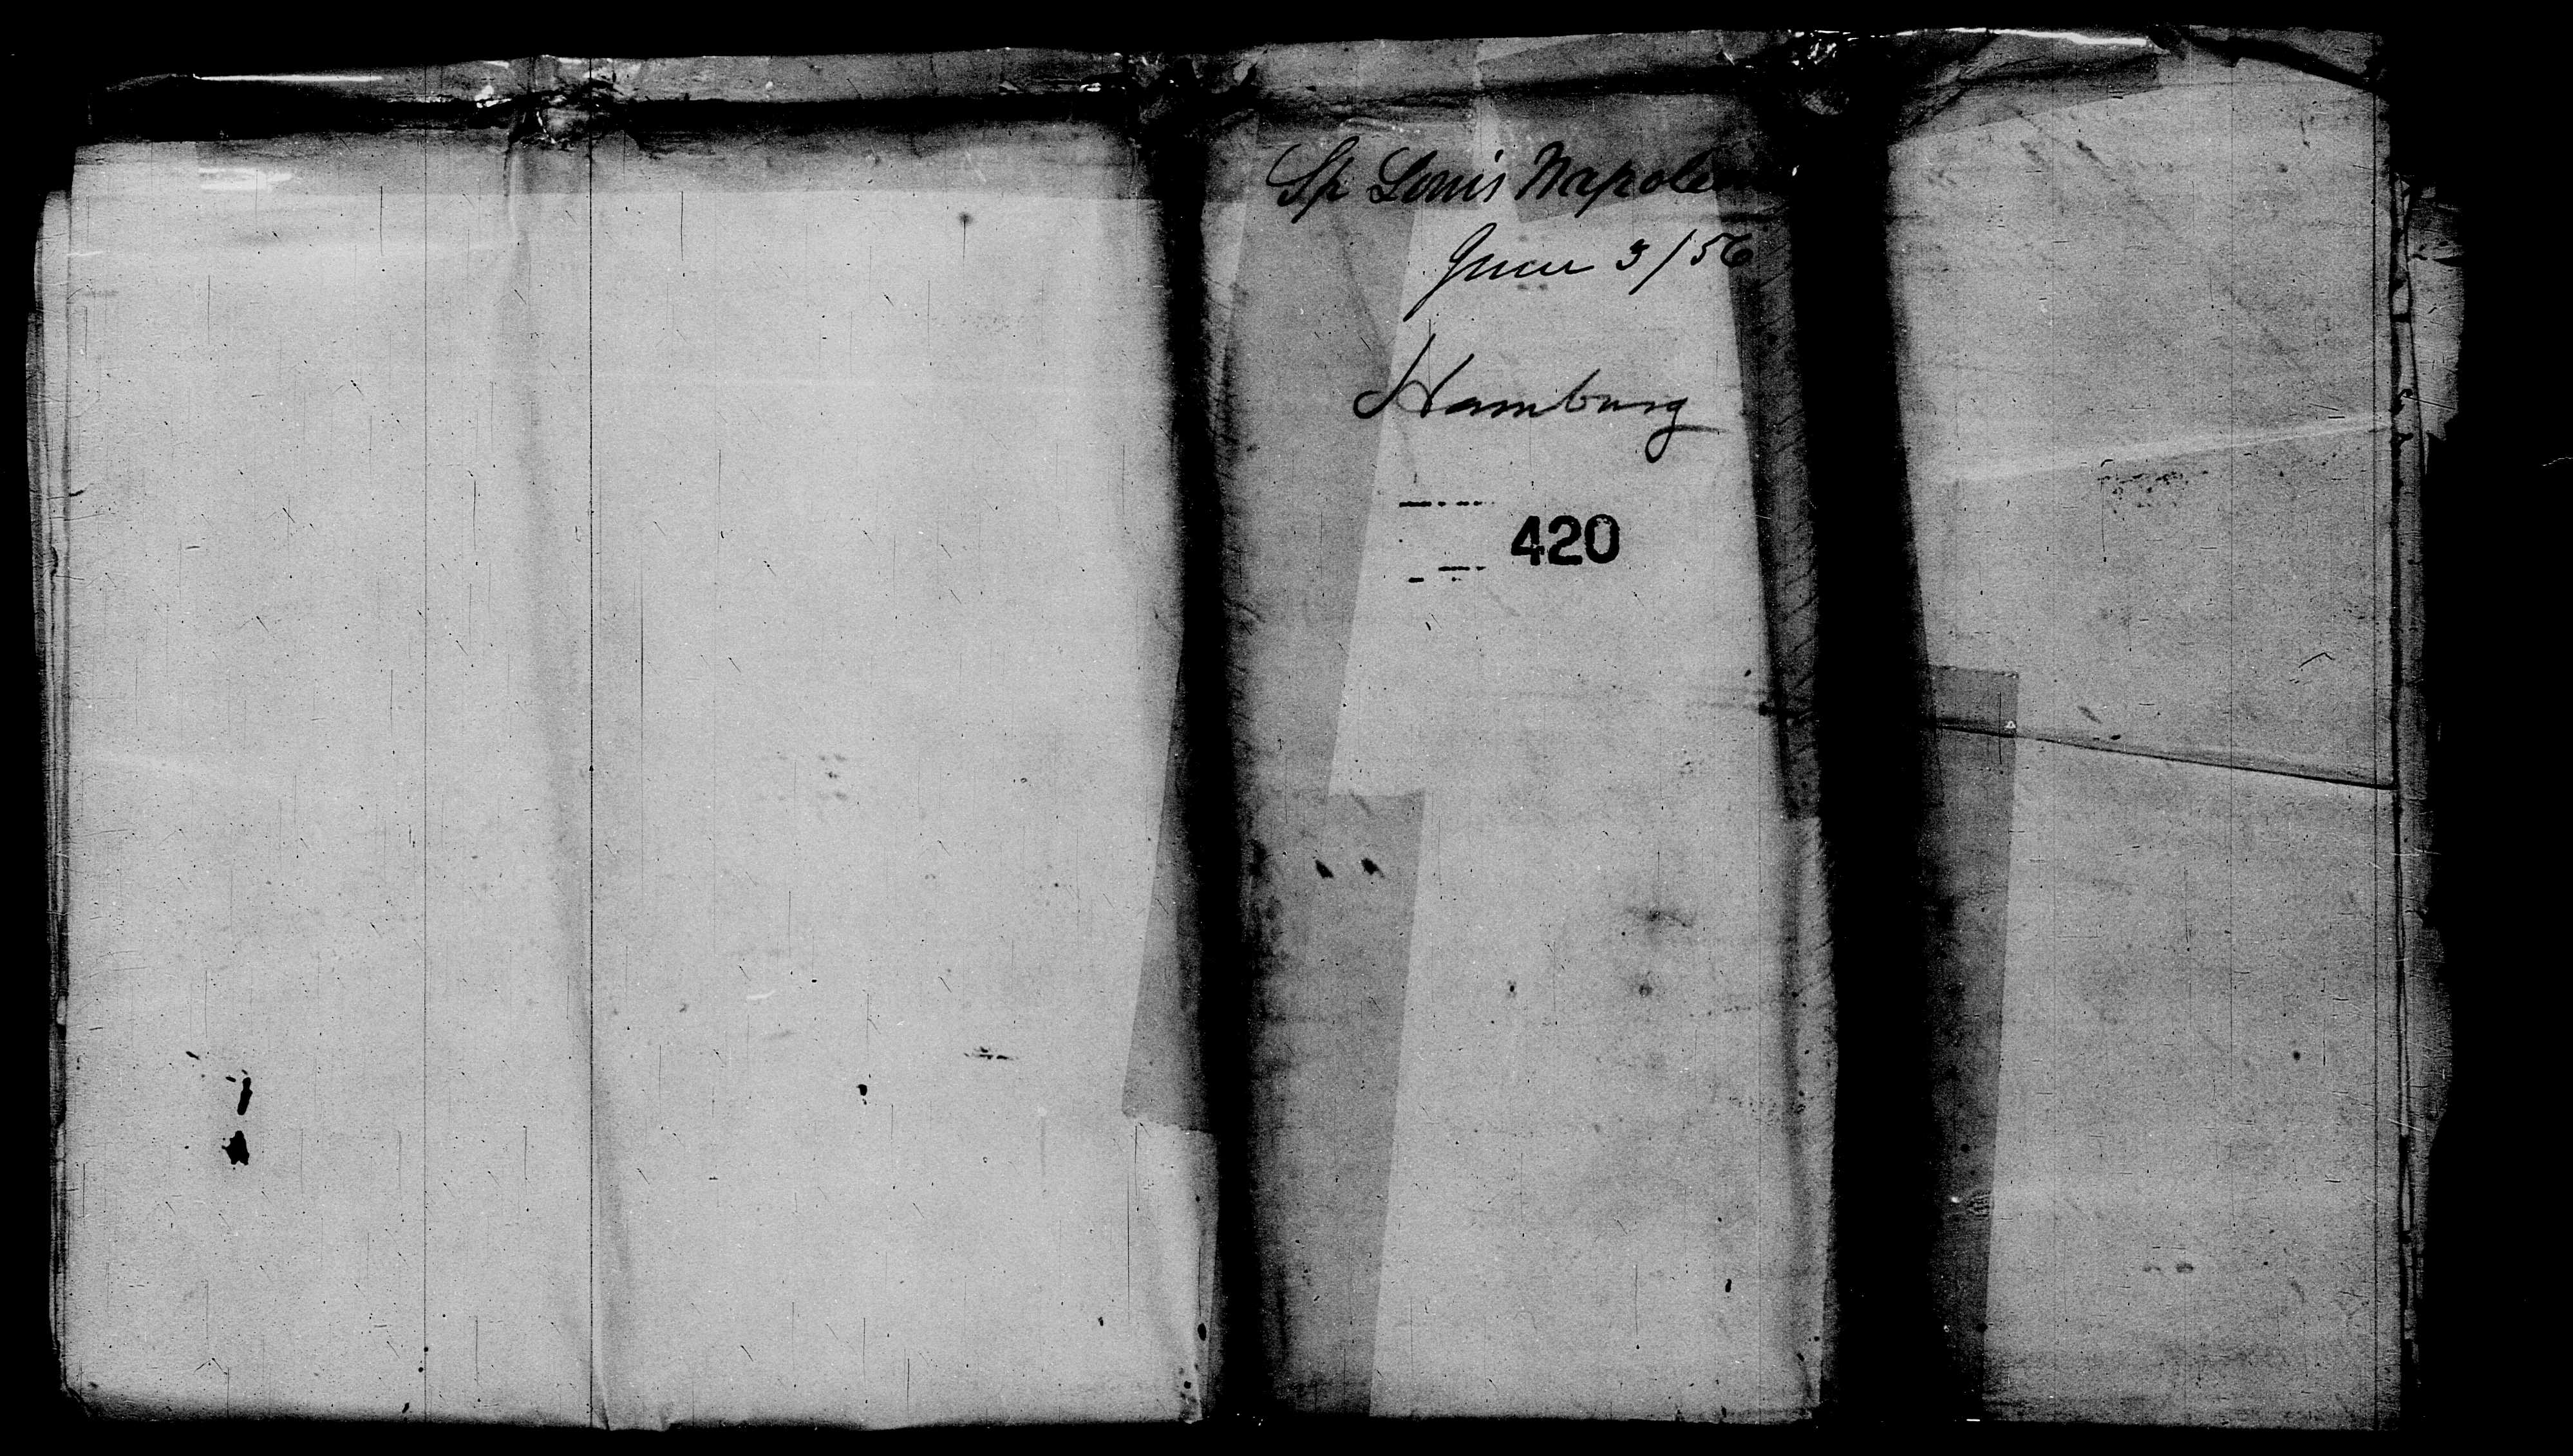 Sp Louis Napoleon
June 3/56
Hamburg
420